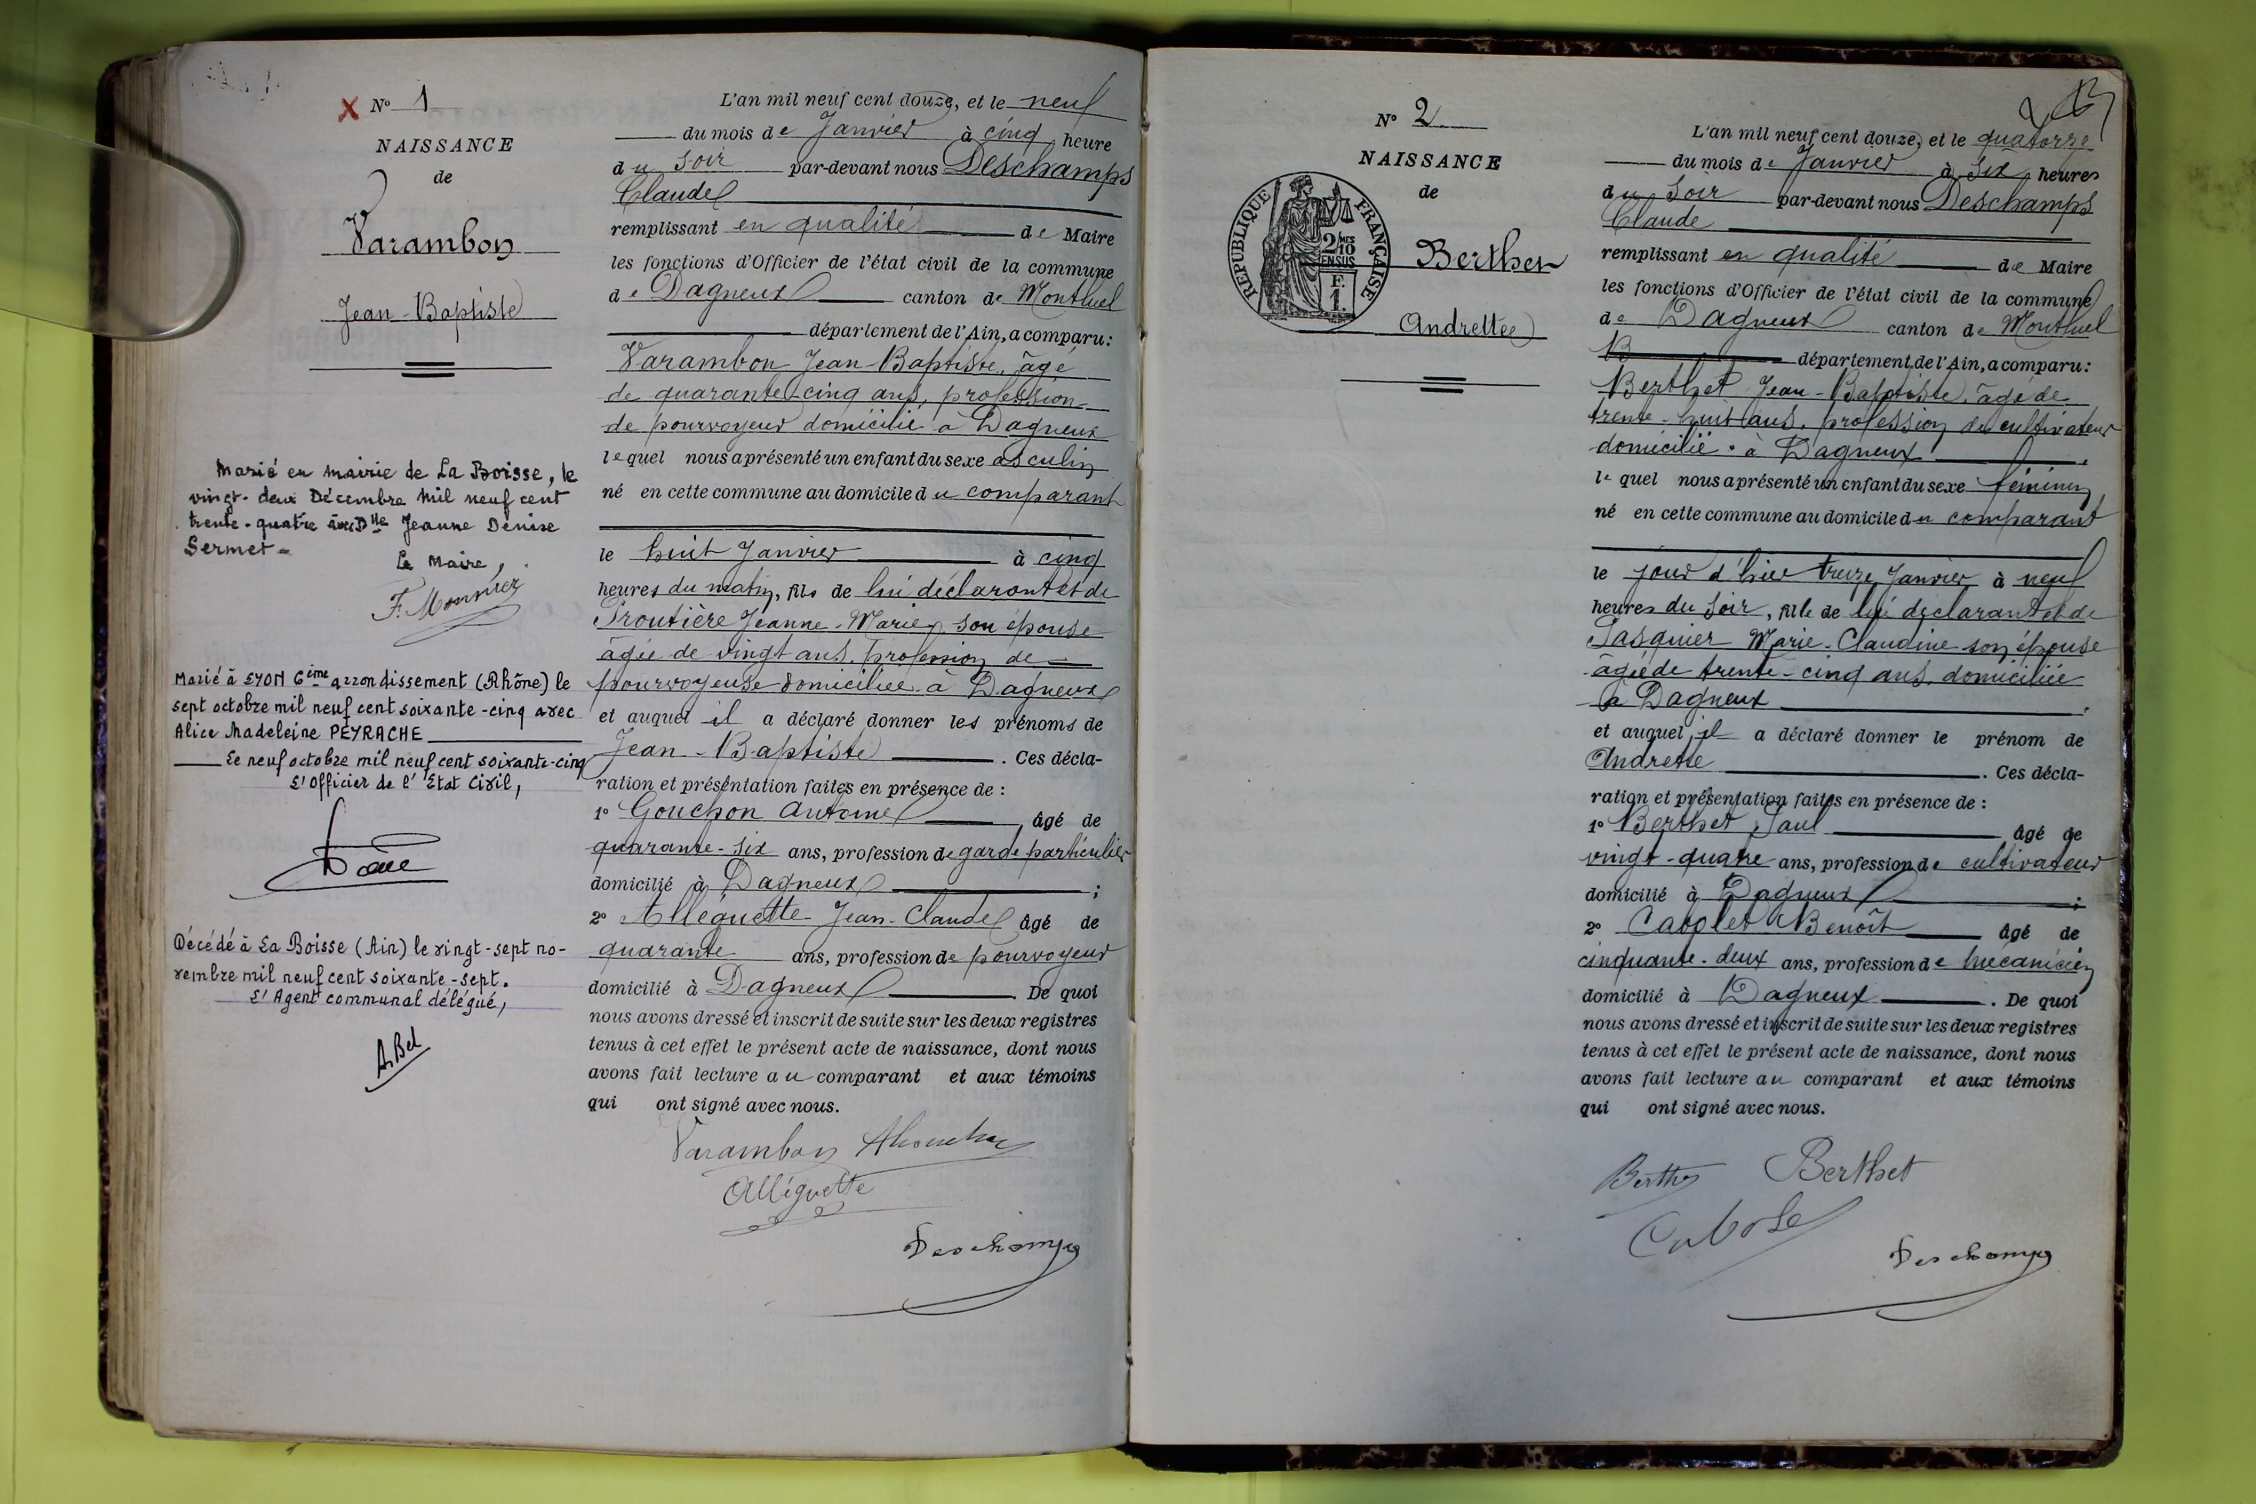 N° 1
NAISSANCE
de
Varambon
Jean-Baptiste
Marié en mairie de La Boisse, le
vingt-deux Décembre mil neuf cent
trente-quatre avec Dlle Jeanne Denise
Sermet =
Le Maire,
Marié à LYON 6ème arrondissement (Rhône) le
sept octobre mil neuf cent soixante-cinq avec
Alice Madeleine PEYRACHE
Le neuf octobre mil neuf cent soixante-cinq
L'Officier de l'Etat Civil,
Décédé à La Boisse (Ain) le vingt-sept no-
vembre mil neuf cent soixante-sept.
L'Agent communal délégué,
A. Bel
L'an mil neuf cent douze, et le neuf
du mois de Janvier à cinq heure
du soir par-devant nous Deschamps
Claude
remplissant en qualité de Maire
les fonctions d'Officier de l'état civil de la commune
de Dagneux canton de Montluel
département de l'Ain, a comparu:
Varambon Jean-Baptiste, âgé
de quarante-cinq ans, profession
de pourvoyeur domicilié à Dagneux
lequel nous a présenté un enfant du sexe asculin
né en cette commune au domicile du comparant
le huit Janvier à cinq
heures du matin, fils de lui déclarant et de
Troutière Jeanne-Marie, son épouse
âgée de vingt ans, profession de
pourvoyeuse domiciliée à Dagneux
et auquel il a déclaré donner les prénoms de
Jean-Baptiste. Ces décla-
ration et présentation faites en présence de :
1° Gouchon Antoine, âgé de
quarante-six ans, profession de garde particulier
domicilié à Dagneux ;
2° Alléguette Jean-Claude âgé de
quarante ans, profession de pourvoyeur
domicilié à Dagneux. De quoi
nous avons dressé et inscrit de suite sur les deux registres
tenus à cet effet le présent acte de naissance, dont nous
avons fait lecture au comparant et aux témoins
qui ont signé avec nous.
Varambon
Alléguette
Deschamps
N° 2
NAISSANCE
de
RÉPUBLIQUE FRANÇAISE
2 MES
10
EN SUS
F.
1.
Berthet
Andrette
L'an mil neuf cent douze, et le quatorze
du mois de Janvier à six heures
du soir par-devant nous Deschamps
Claude
remplissant en qualité de Maire
les fonctions d'Officier de l'état civil de la commune
de Dagneux canton de Montluel
B département de l'Ain, a comparu:
Berthet Jean-Baptiste, âgé de
trente-huit ans, profession de cultivateur
domicilié à Dagneux
lequel nous a présenté un enfant du sexe féminin,
né en cette commune au domicile du comparant
le jour d'hier treize Janvier à neuf
heures du soir, fille de lui déclarant et de
Pasquier Marie-Claudine son épouse
âgée de trente-cinq ans, domiciliée
à Dagneux
et auquel il a déclaré donner le prénom de
Andrette. Ces décla-
ration et présentation faites en présence de :
1° Berthet Paul âgé de
vingt-quatre ans, profession de cultivateur
domicilié à Dagneux ;
2° Benoît âgé de
cinquante-deux ans, profession de mécanicien
domicilié à Dagneux. De quoi
nous avons dressé et inscrit de suite sur les deux registres
tenus à cet effet le présent acte de naissance, dont nous
avons fait lecture au comparant et aux témoins
qui ont signé avec nous.
Berthet Berthet
Deschamps